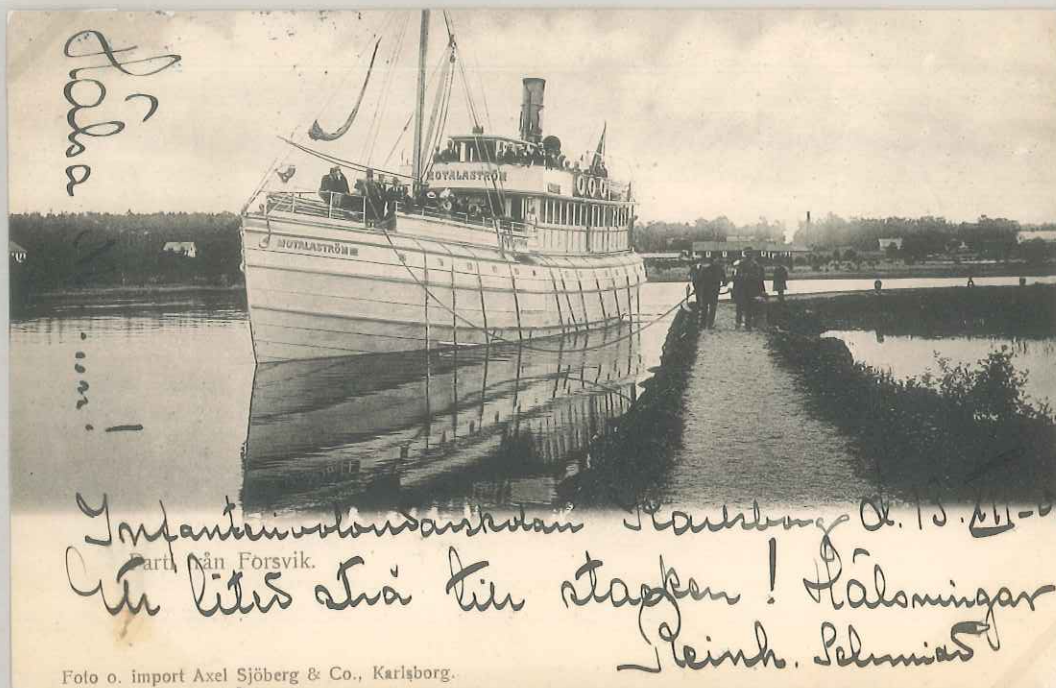 Hälsa
MOTALASTRÖM
MOTALASTRÖM
Infanterivolontärskolan Karlsborg d. 13. VII-0
Parti från Forsvik.
Ett litet strå till stacken! Hälsningar
Reinh. Schmidt
Foto o. import Axel Sjöberg & Co., Karlsborg.